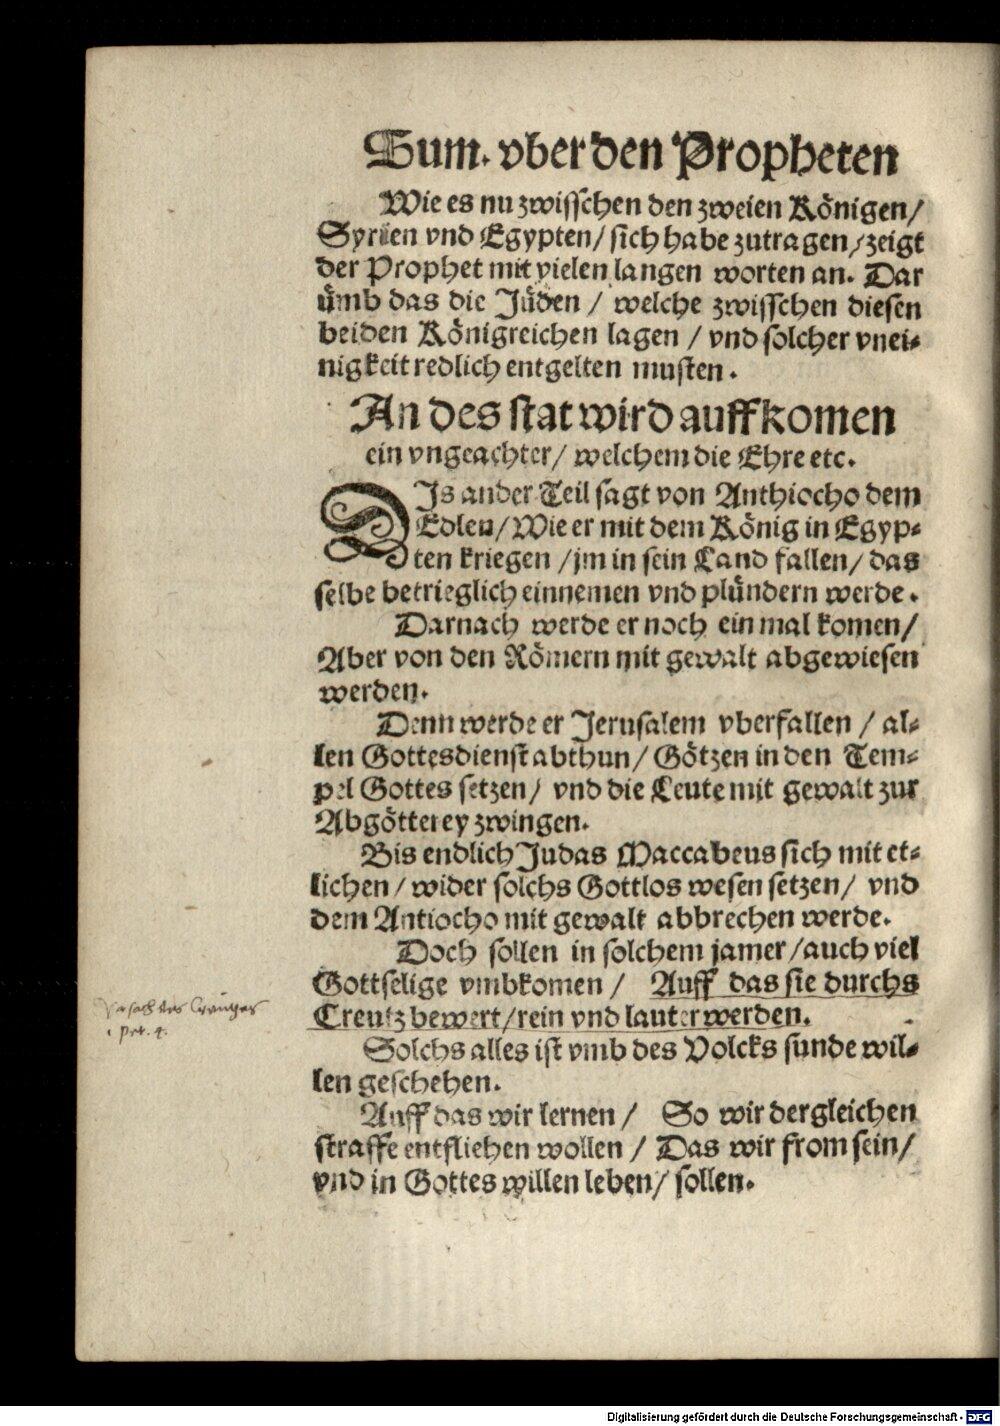 Sum. vber den Propheten
Wie es nu zwisschen den zweien Königen/
Syrien vnd Egypten/ sich habe zutragen/ zeigt
der Prophet mit vielen langen worten an. Dar
ümb das die Jüden / welche zwisschen diesen
beiden Königreichen lagen / vnd solcher vnei-
nigkeit redlich entgelten musten.
An des stat wird auffkomen
ein vngeachter/ welchem die Ehre etc.
DJs ander Teil sagt von Anthiocho dem
Edlen/ Wie er mit dem König in Egyp-
ten kriegen / jm in sein Land fallen/ das
selbe betrieglich einnemen vnd plündern werde.
Darnach werde er noch ein mal komen/
Aber von den Römern mit gewalt abgewiesen
werden.
Denn werde er Jerusalem vberfallen / al-
len Gottesdienst abthun/ Götzen in den Tem-
pel Gottes setzen/ vnd die Leute mit gewalt zur
Abgötterey zwingen.
Bis endlich Judas Maccabeus sich mit et-
lichen / wider solchs Gottlos wesen setzen/ vnd
dem Antiocho mit gewalt abbrechen werde.
Doch sollen in solchem jamer / auch viel
Gottselige vmbkomen / Auff das sie durchs
Creutz bewert/ rein vnd lauter werden.
des Creutzes
1 pet. 4.
Solchs alles ist vmb des Volcks sunde wil-
len geschehen.
Auff das wir lernen / So wir dergleichen
straffe entfliehen wollen / Das wir from sein/
vnd in Gottes willen leben/ sollen.
Digitalisierung gefördert durch die Deutsche Forschungsgemeinschaft - DFG